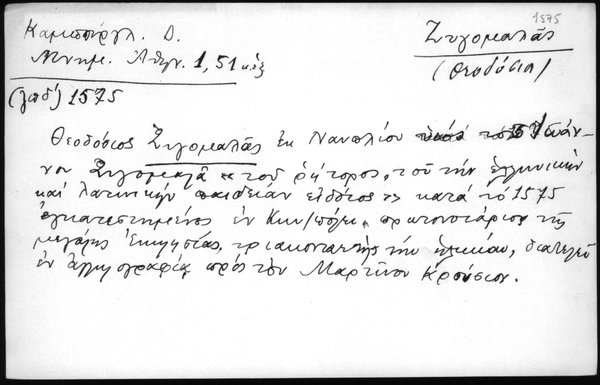 1575
Καμπούργλ. Δ.
Μνημ. Ἀθην. 1,51 κἑξ
Ζυγομαλᾶς
(Θεοδόσιος)
1575
Θεοδόσιος Ζυγομαλᾶς ἐκ Ναυπλίου υἱὸς τοῦ Ἰωάν-
νου Ζυγομαλᾶ "τοῦ ῥήτορος, τοῦ τὴν ἑλληνικὴν
καὶ λατινικὴν παιδείαν εἰδότος" κατὰ τὸ 1575
ἐγκατεστημένος ἐν Κων/πόλει, πρωτονοτάριος τῆς
μεγάλης Ἐκκλησίας, τριακοντα τὴν ἡλικίαν, διατελεῖ
ἐν ἀλληλογραφίᾳ πρὸς τὸν Μαρτῖνον Κρούσιον.